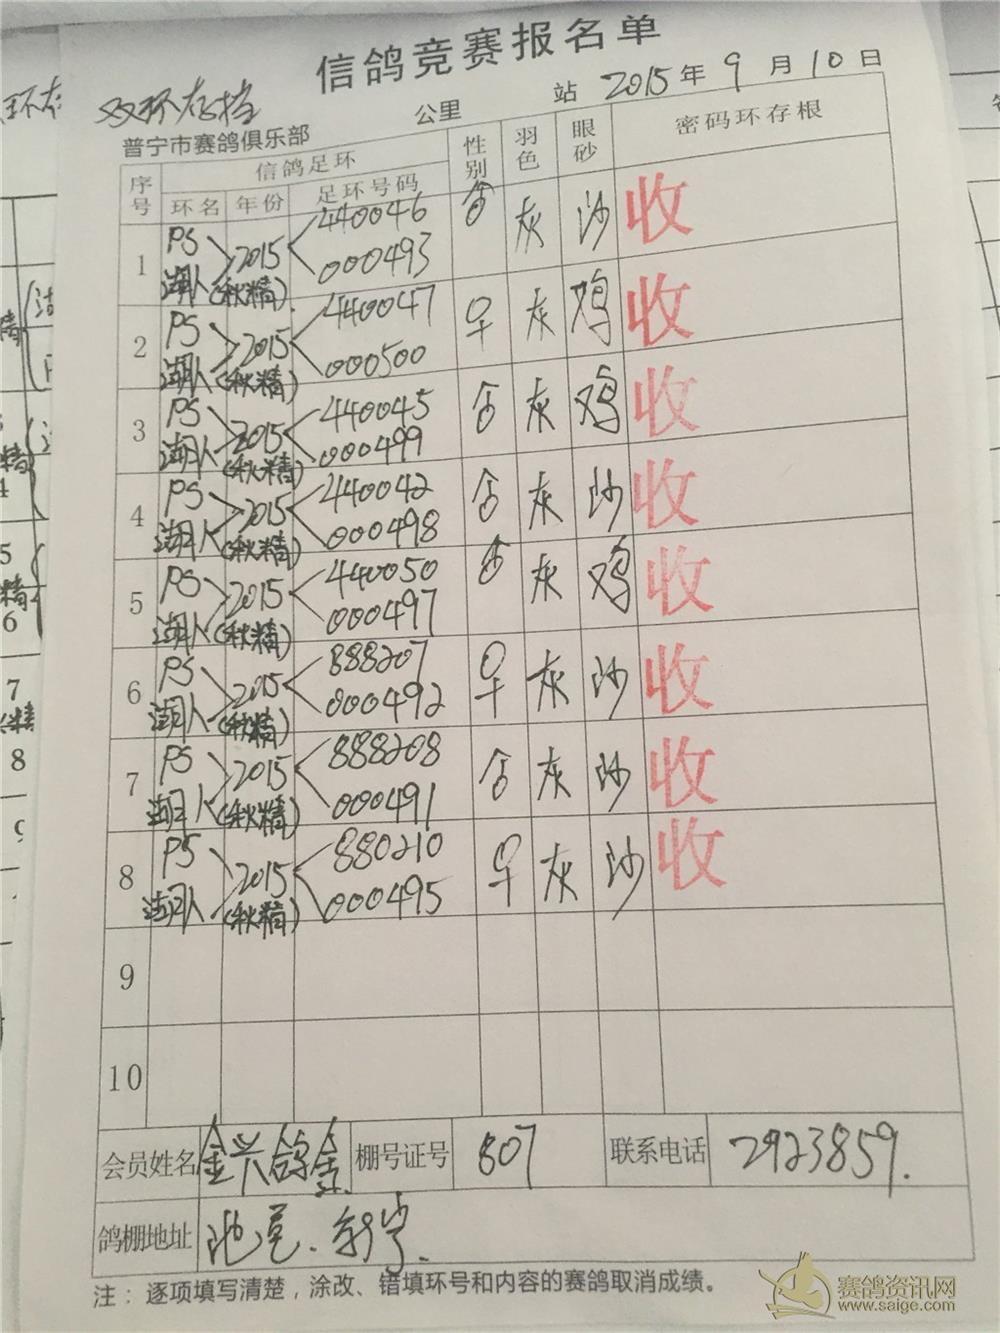 信鸽竞赛报名单
双环存档
公里 站 2015年9月10日
普宁市赛鸽俱乐部
序号 信鸽足环 性别 羽色 眼砂 密码环存根
环名 年份 足环号码
1 PS 2015 440046 灰 沙 收
(秋精) 000493
2 PS 2015 440047 灰 鸡 收
(秋精) 000500
3 PS 2015 440045 灰 鸡 收
(秋精) 000499
4 PS 2015 440042 灰 沙 收
(秋精) 000498
5 PS 2015 440050 灰 鸡 收
(秋精) 000497
6 PS 2015 888207 灰 沙 收
(秋精) 000492
7 PS 2015 888208 灰 沙 收
(秋精) 000491
8 PS 2015 880210 灰 沙 收
(秋精) 000495
9
10
会员姓名 金兴鸽舍 棚号证号 807 联系电话 2923859.
鸽棚地址
注：逐项填写清楚，涂改、错填环号和内容的赛鸽取消成绩。
赛鸽资讯网
www.saige.com